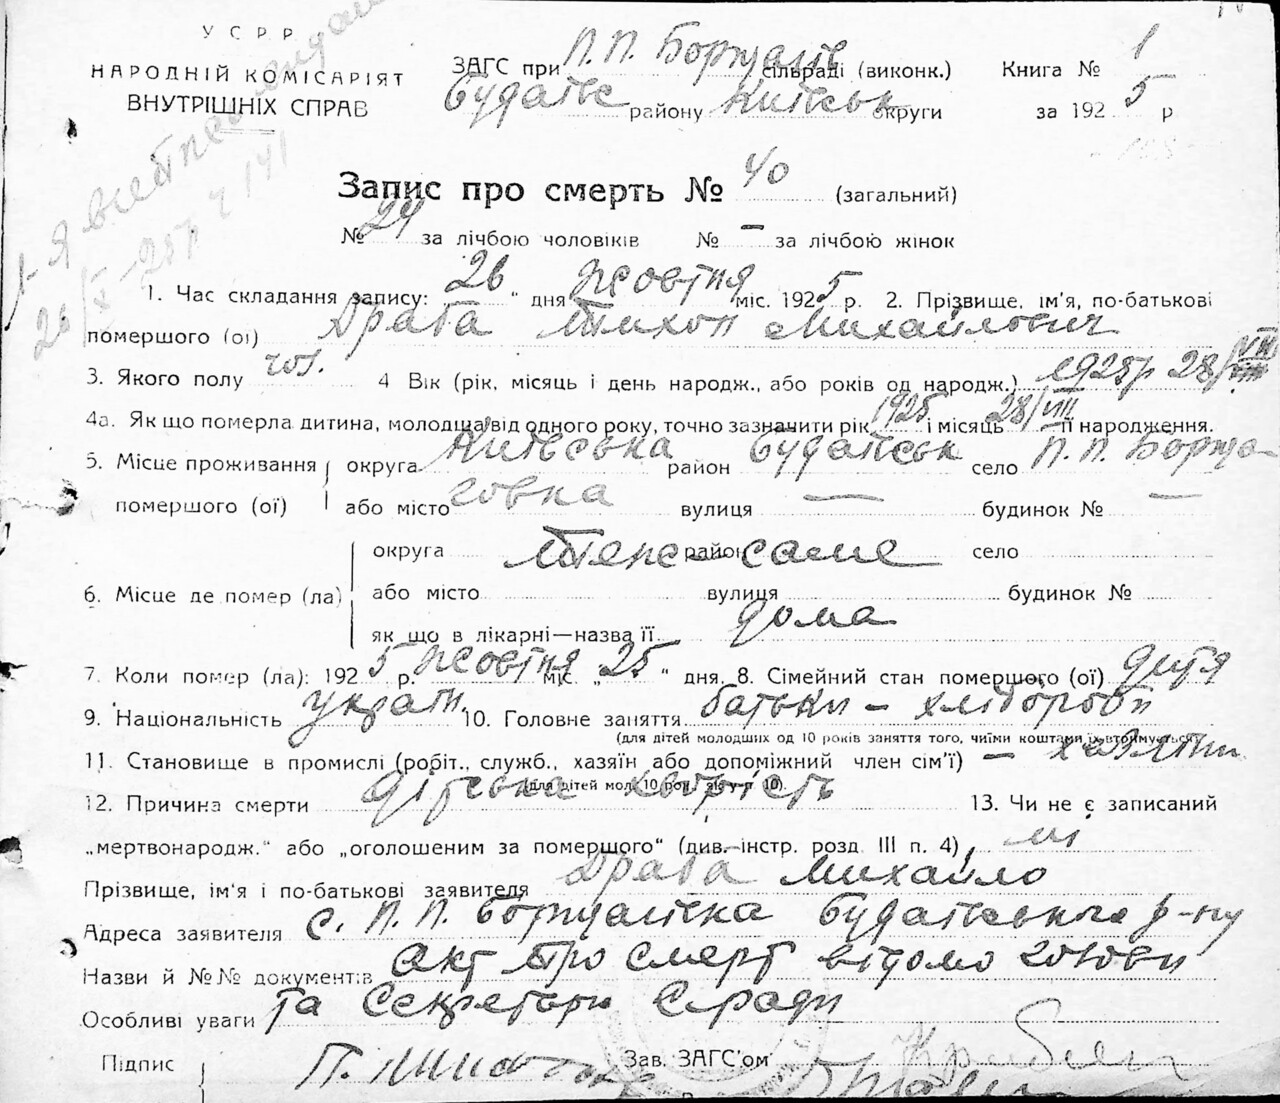 У С Р Р
НАРОДНІЙ КОМІСАРІЯТ
ВНУТРІШНІХ СПРАВ
ЗАГС при П.П. Борщагів сільраді (виконк.) Книга № 1
Будаївс району Київськ округи за 1925 р
Запис про смерть № 40 (загальний)
№ 24 за лічбою чоловіків № — за лічбою жінок
1. Час складання запису: 26 " дня Жовтня міс. 1925 р. 2. Прізвище, ім'я, по-батькові
помершого (ої) Драба Тихон Михайлович
3. Якого полу чол. 4 Вік (рік, місяць і день народж., або років од народж.) 1925р 28/VIII
4а. Як що померла дитина, молодша від одного року, точно зазначити рік 1925 і місяць 28/VIII її народження.
5. Місце проживання округа Київська район Будаївськ село П.П. Борща-
помершого (ої) або місто говка вулиця — будинок № —
округа район село
Теж саме
6. Місце де помер (ла) або місто вулиця будинок №
як що в лікарні—назва її дома
7. Коли помер (ла): 1925 р. Жовтня міс. „ 25 " дня. 8. Сімейний стан помершого (ої) дитя
9. Національність україн. 10. Головне заняття батьки — хлібороби
(для дітей молодших од 10 років заняття того, чиїми коштами їх втримується)
11. Становище в промислі (робіт., служб., хазяїн або допоміжний член сім'ї) — хазяїни
(для дітей мол. 10 рок. як у п. 10).
12. Причина смерти Дітська хворість 13. Чи не є записаний
„мертвонародж." або „оголошеним за помершого" (див. інстр. розд. III п. 4) ні
Прізвище, ім'я і по-батькові заявителя Драба Михайло
Адреса заявителя с. П.П. Борщагівка Будаївського р-ну
Назви й №№ документів акт про смерт відомо голови
Особливі уваги та Секретарю С.ради
Підпис Зав. ЗАГС'ом